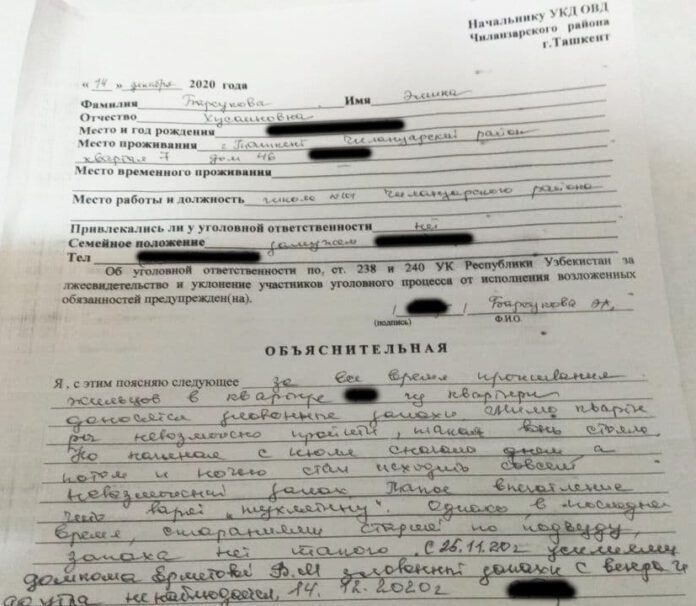 Начальнику УКД ОВД
Чиланзарского района
г.Ташкент
« 14 » декабря 2020 года
Фамилия Барсукова Имя
Отчество Хусаиновна
Место и год рождения
Место проживания г. Ташкент Чиланзарский район
квартал 7 дом 46
Место временного проживания
Место работы и должность школа Чиланзарского района
Привлекались ли у уголовной ответственности нет
Семейное положение замужем
Тел
Об уголовной ответственности по, ст. 238 и 240 УК Республики Узбекистан за
лжесвидетельство и уклонение участников уголовного процесса от исполнения возложенных
обязанностей предупрежден(на).
/ / Барсукова Э.
(подпись) Ф.И.О.
ОБЪЯСНИТЕЛЬНАЯ
Я , с этим поясняю следующее за все время проживания
жильцов в квартире квартири
доносятся зловонные запахи мимо кварти
ры невозможно пройти, такая вонь стояла
Но начиная с июля сначала днем, а
потом и ночью стал исходить совсем
невозможный запах. Такое впечатление
что варят „тухлятину". Однако в последнее
время, стараниями старшей по подъезду,
запаха нет такого. С 25.11.20г усилиями
домкома зловонный запахи с вечера и
до утра не наблюдается, 14. 12.2020г